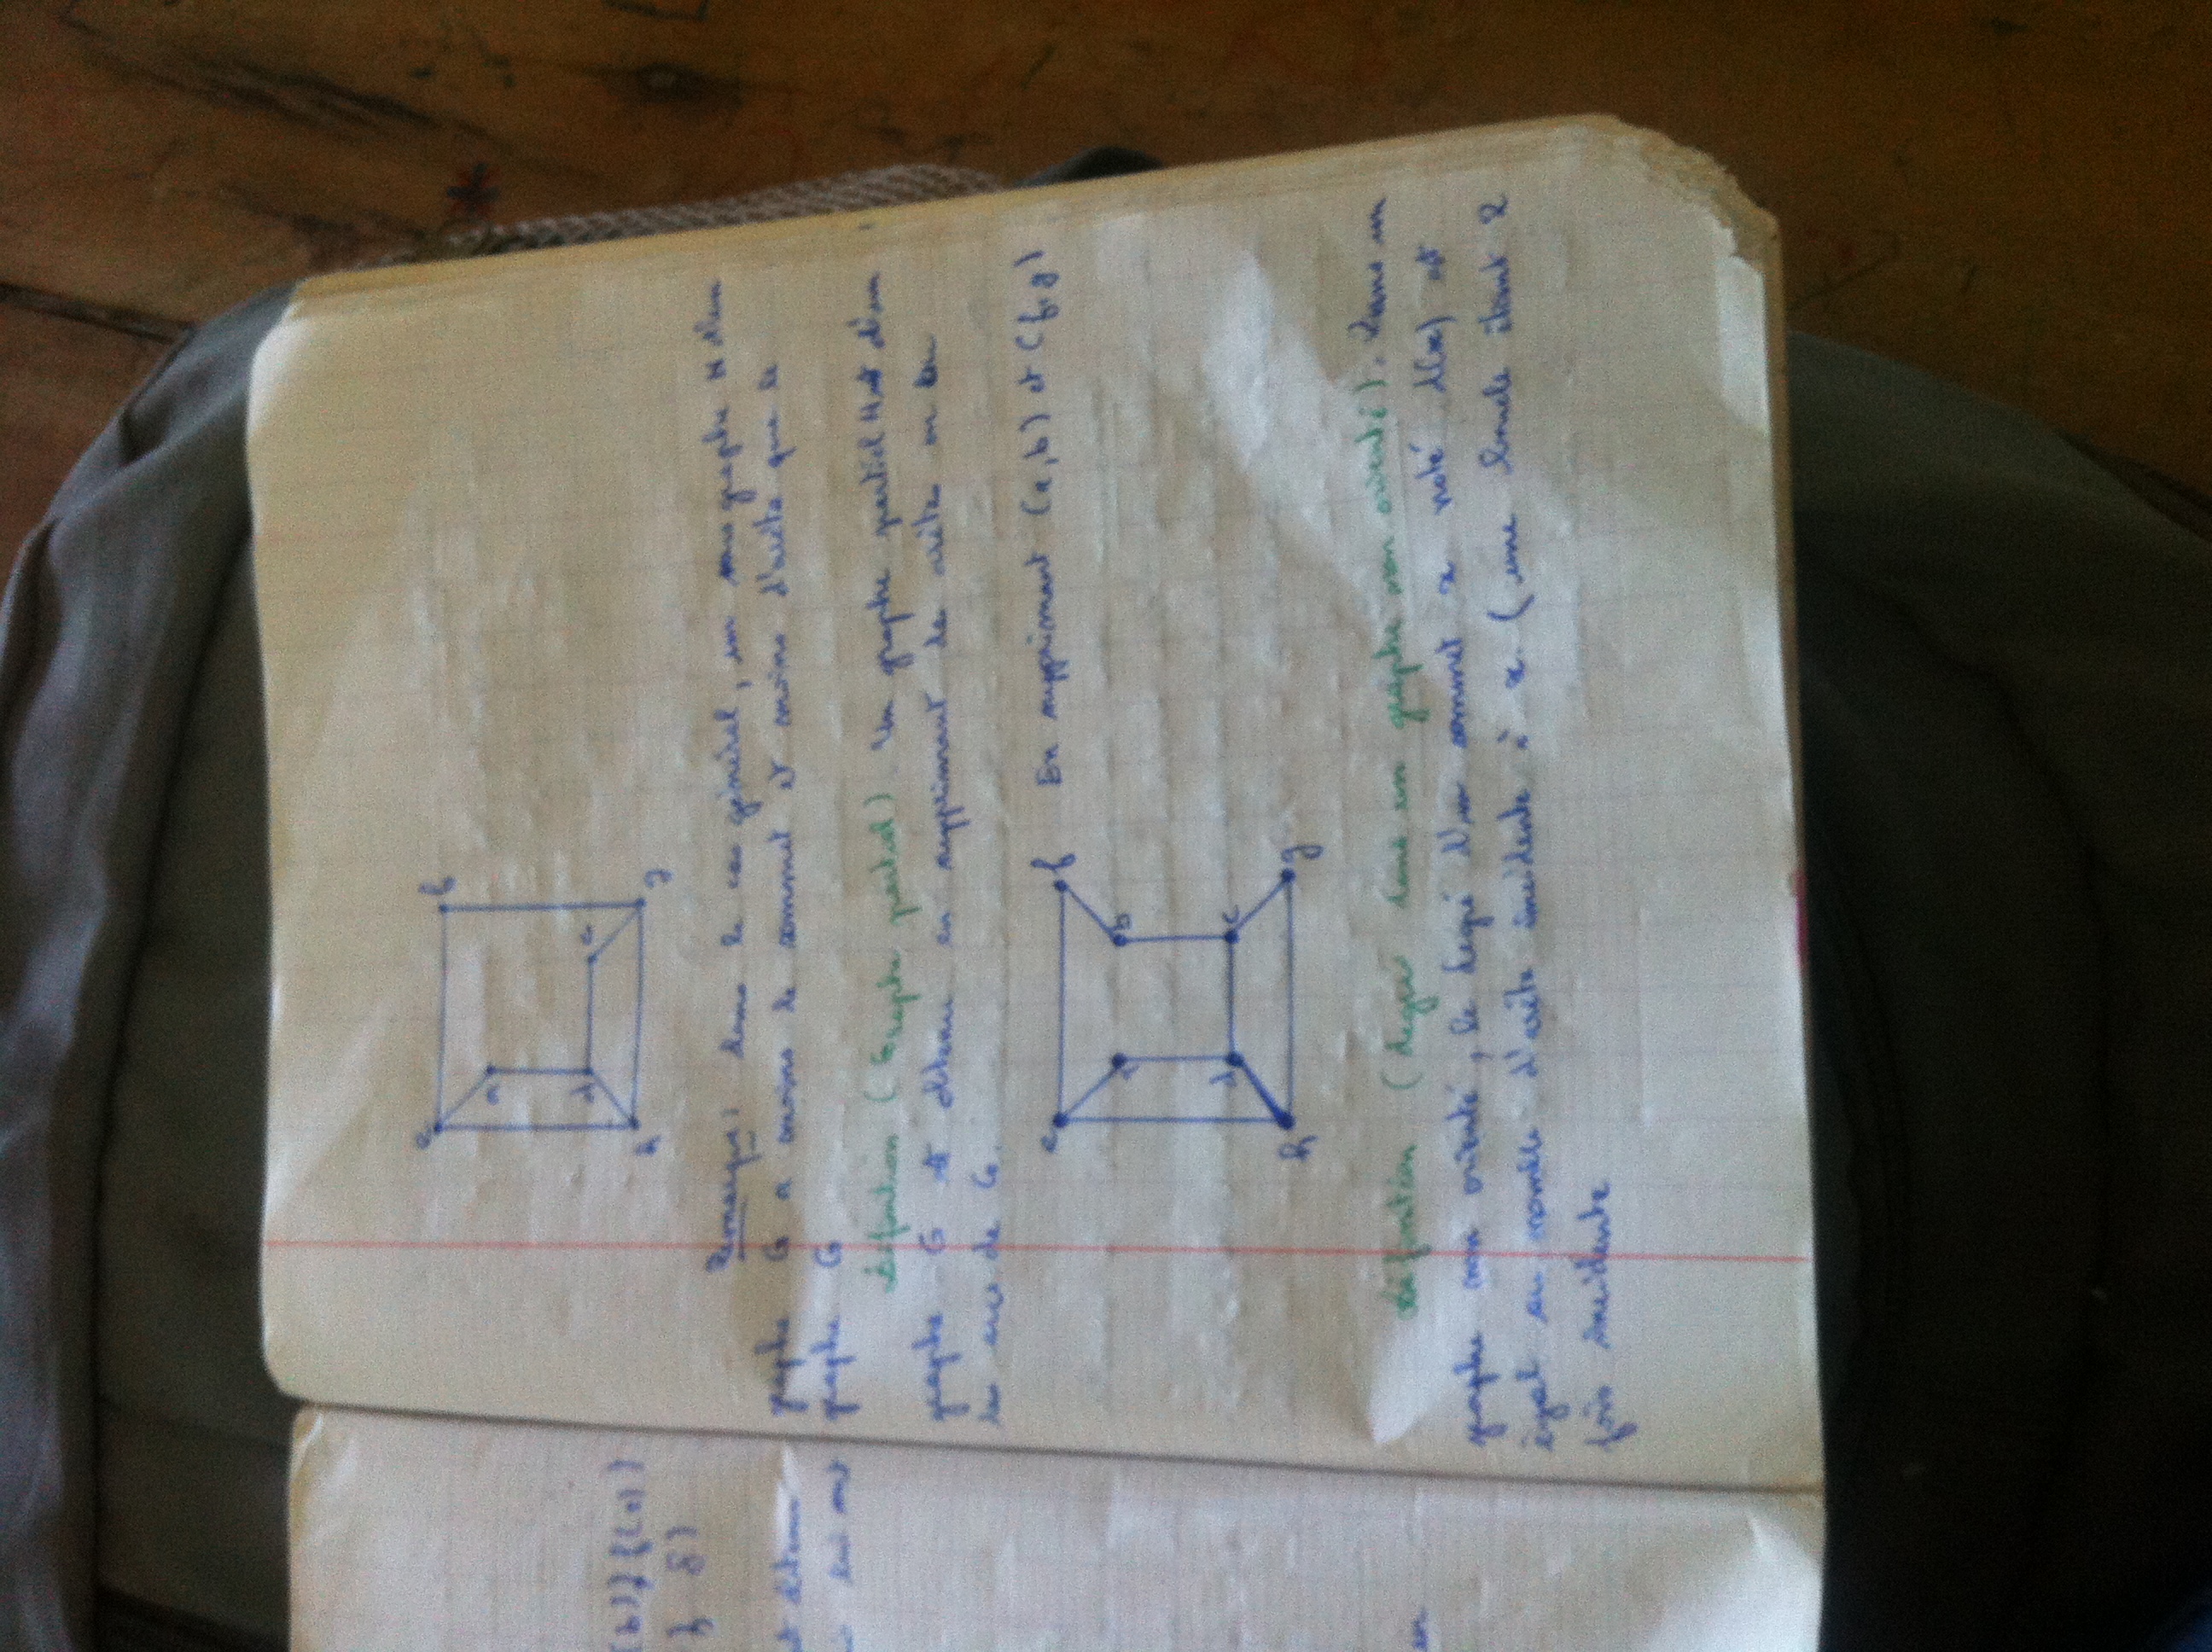 (b)}{(a)
e f
a
d c
h g
Remarque : dans le cas général, un sous graphe H d'un
graphe G a moins de sommet et moins d'arête que le
graphe G
Définition (Graphe partiel). Un graphe partiel H d'un
graphe G est obtenu en supprimant des arêtes ou
les arcs de G.
e f En supprimant (a,b) et (f,g)
a b
d c
h g
Définition (degré dans un graphe non orienté). Dans un
graphe non orienté, le degré d'un sommet x noté d(x) est
égal au nombre d'arête incidente à x. (une boucle étant 2
fois incidente